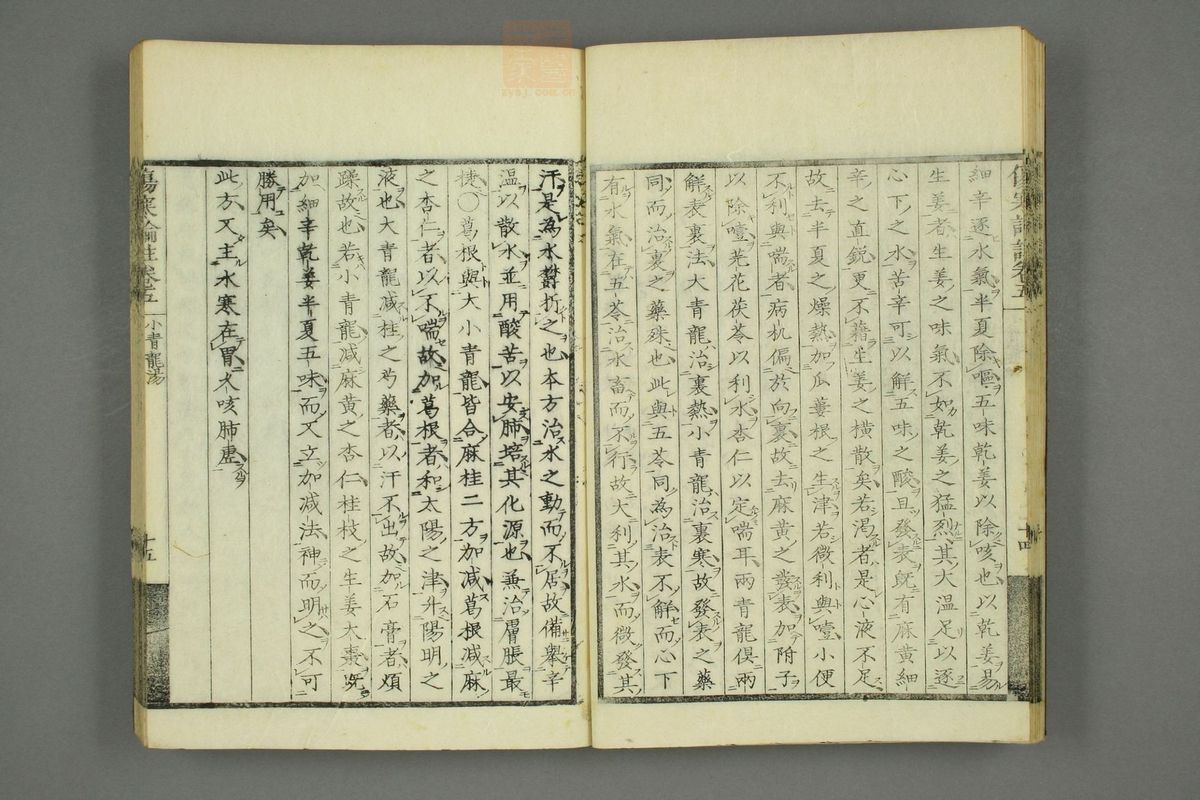 細辛逐水氣半夏除嘔五味乾姜以除咳也以乾姜易
生姜者生姜之味氣不如乾姜之猛烈其大温足以逐
心下之水苦辛可以解五味之酸且發表既有麻黄細
辛之直鋭更不藉生姜之横散矣若渇者是心液不足
故去半夏之燥熱加瓜蔞根之生津若微利與噎小便
不利與喘者病机偏於向裏故去麻黄之發表加附子
以除噎芫花茯苓以利水杏仁以定喘耳兩青龍俱兩
解表裏法大青龍治裏熱小青龍治裏寒故發表之藥
同而治裏之藥殊也此與五苓同為治表不解而心下
有水氣在五苓治水畜而不行故大利其水而微發其
汗是為水欝折之也本方治水之動而不居故備舉辛
温以散水並用酸苦以安肺培其化源也兼治膚脹最
捷〇葛根與大小青龍皆合麻桂二方加减葛根减麻
之杏仁者以不喘故加葛根者和太陽之津升陽明之
液也大青龍减桂之芍藥者以汗不出故加石膏者煩
躁故也若小青龍减麻黄之杏仁桂枝之生姜大棗既
加細辛乾姜半夏五味而又立加减法神而明之不可
勝用矣
此方又主水寒在胃久咳肺虚
傷寒論註卷五
小青龍湯
十五
十四
zysj.com.cn